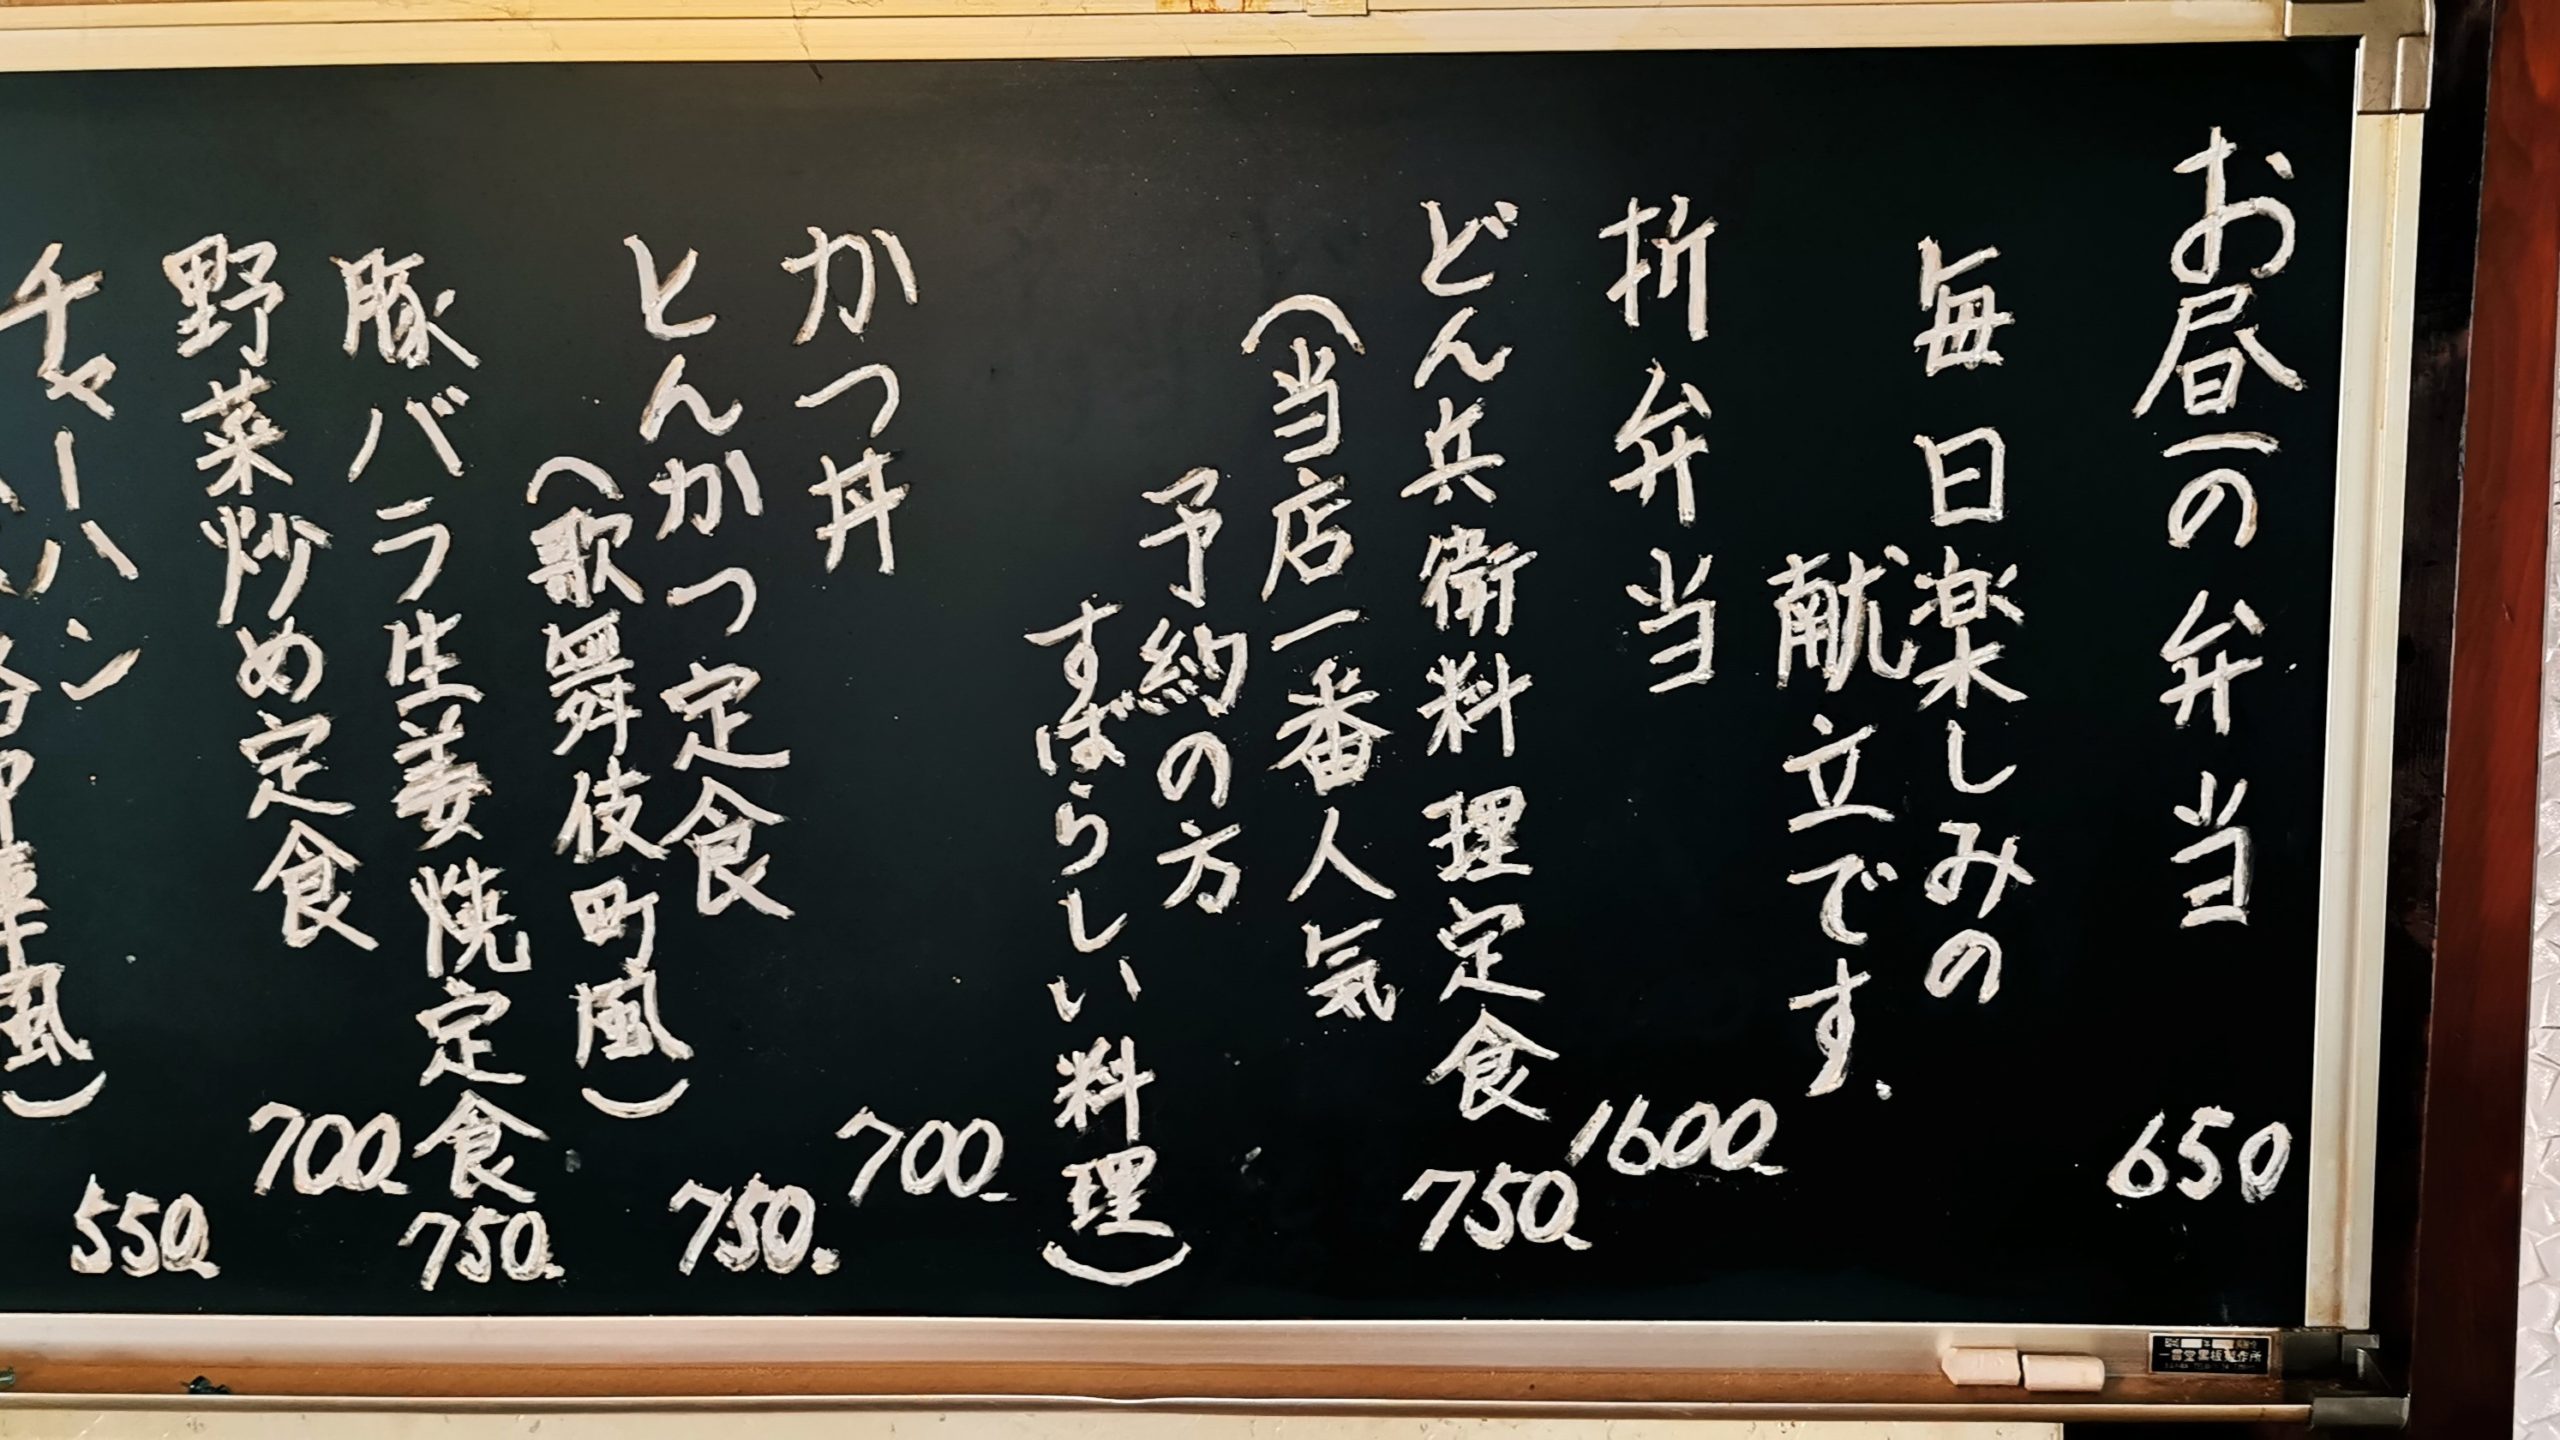 お昼の弁当 650
毎日楽しみの
献立です.
折弁当 1600
どん兵衛料理定食 750
(当店一番人気
予約の方
すばらしい料理)
かつ丼 700
とんかつ定食 750
(歌舞伎町風)
豚バラ生姜焼定食 750
野菜炒め定食 700
チャーハン 550
風)
一富堂黒板製作所